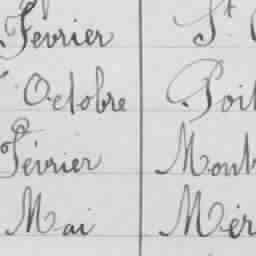 Février St
Octobre Poit
Février Mont
Mai Mér